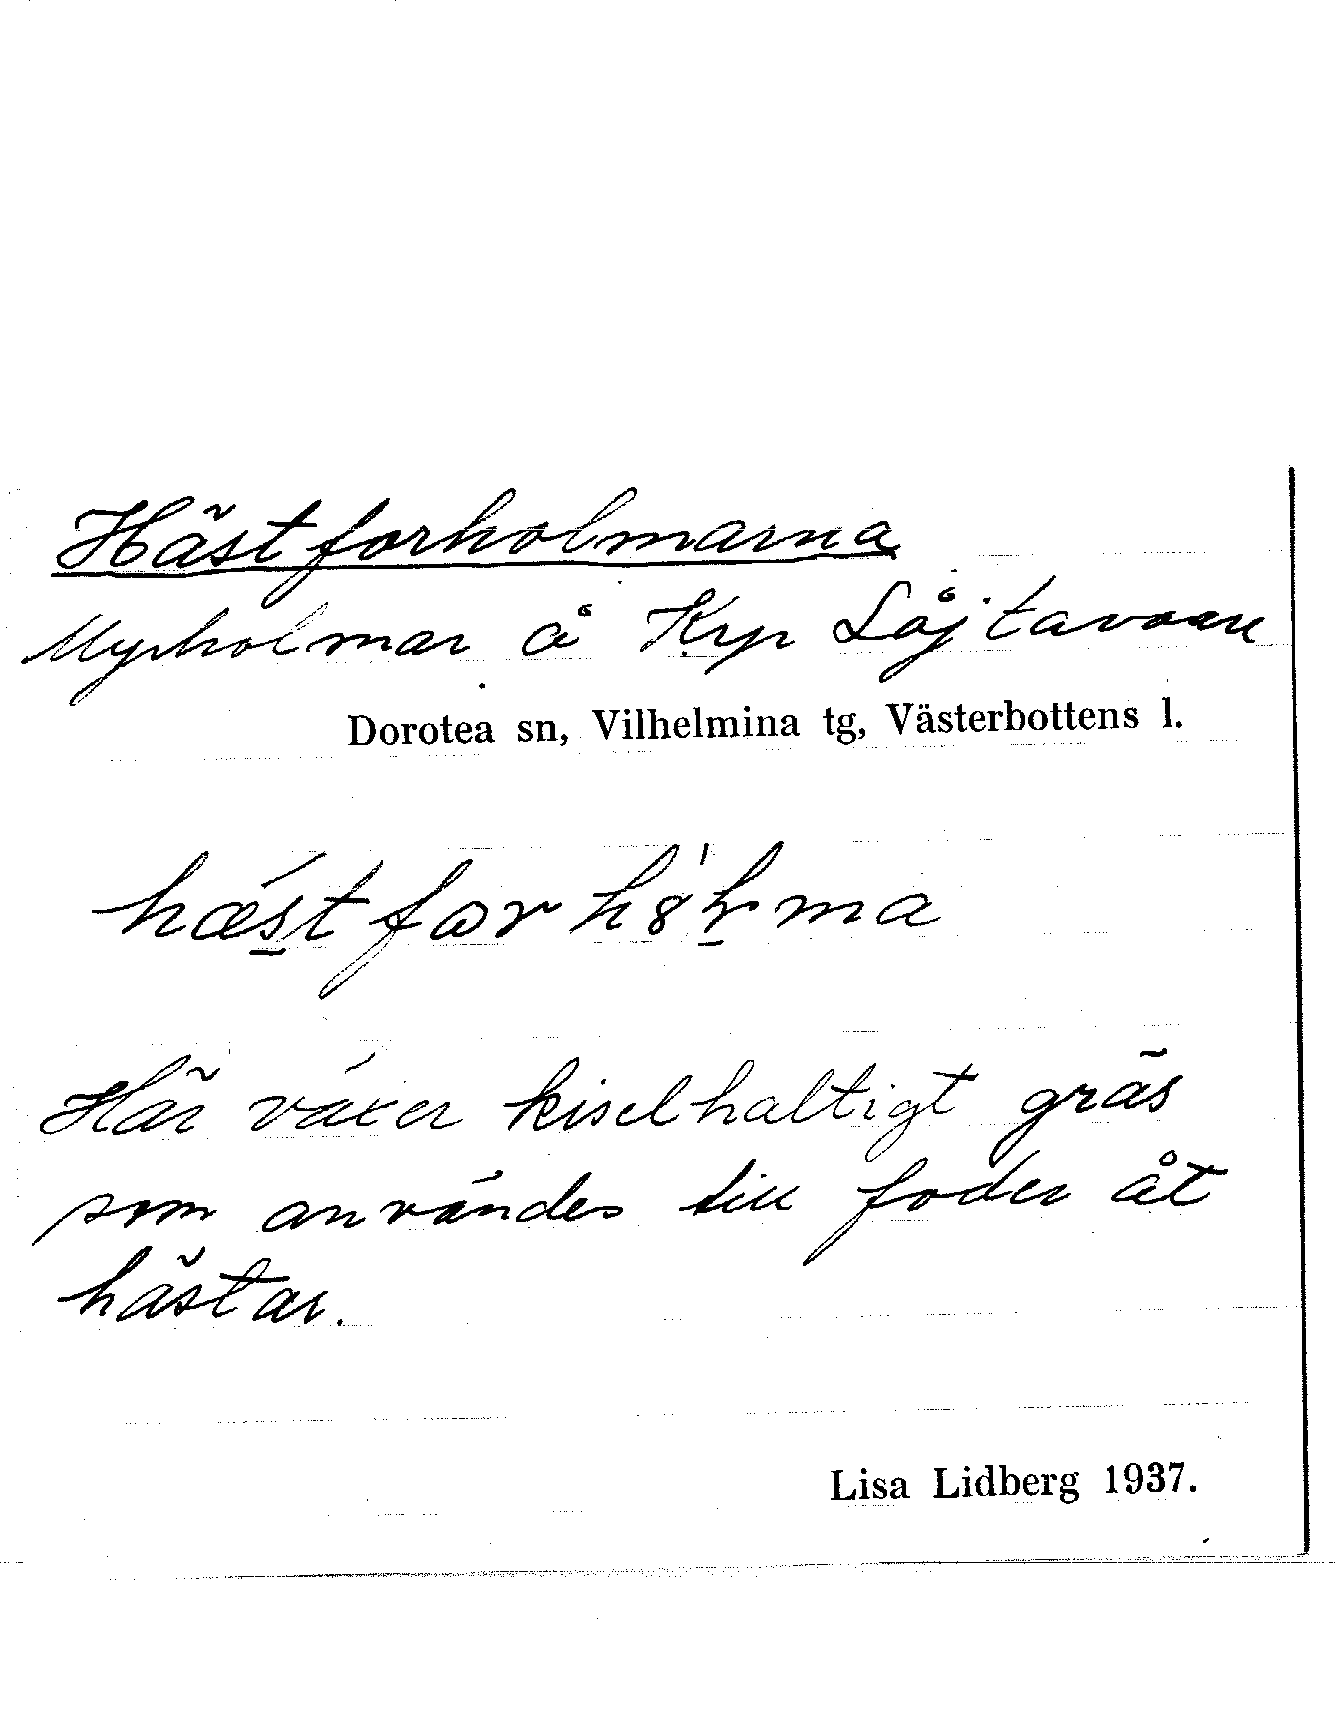 Hästforholmarna
Myrholmar å Krp Låjtavaare
Dorotea sn, Vilhelmina tg, Västerbottens l.
hæstforhȣlma
Här växer kiselhaltigt gräs
som användes till foder åt
hästar.
Lisa Lidberg 1937.